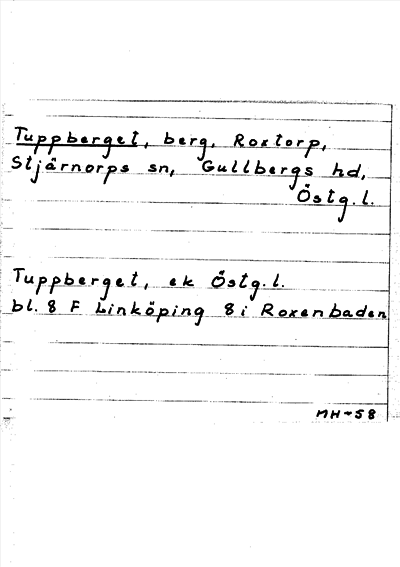 Tuppberget, berg, Roxtorp,
Stjärnorps sn, Gullbergs hd,
Östg. l.
Tuppberget, ek Östg. l.
bl. 8 F Linköping 8 i Roxenbaden
MH-58